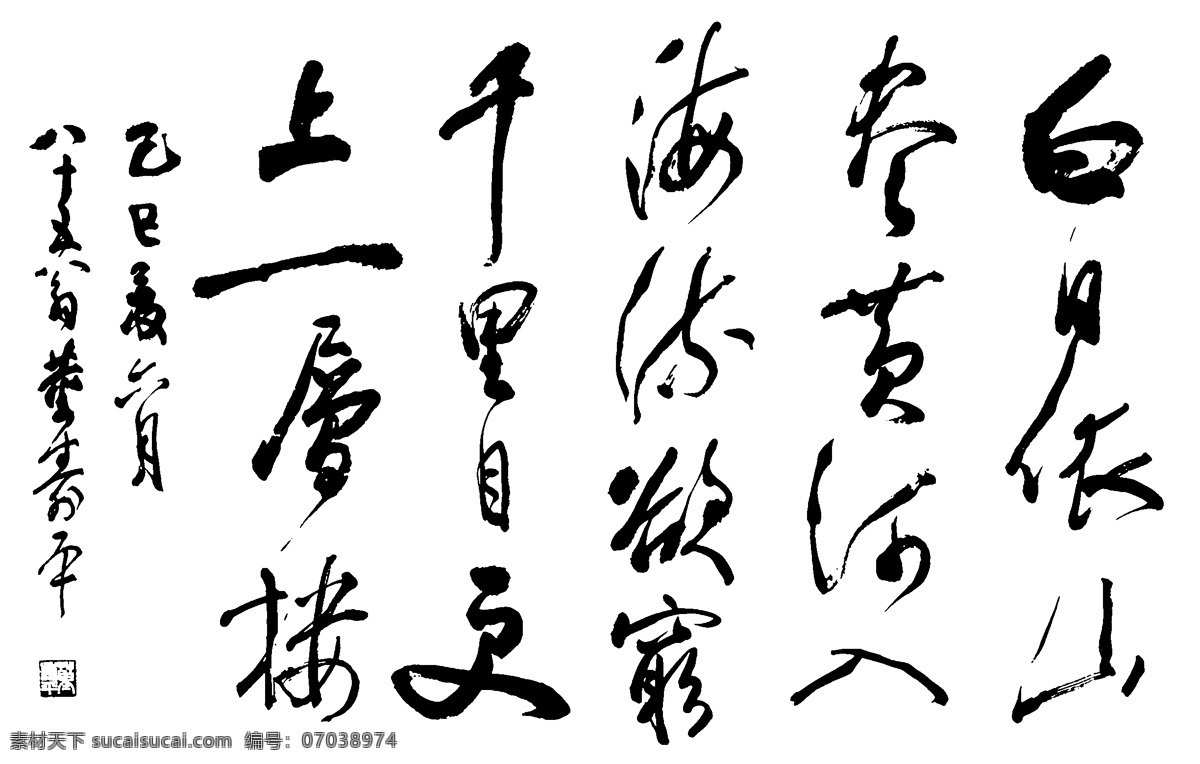 白日依山
盡黄河入
海流欲窮
千里目更
上一層樓
己巳夏六月
八十五翁董壽平
素材天下 sucaisucai.com 编号：07038974